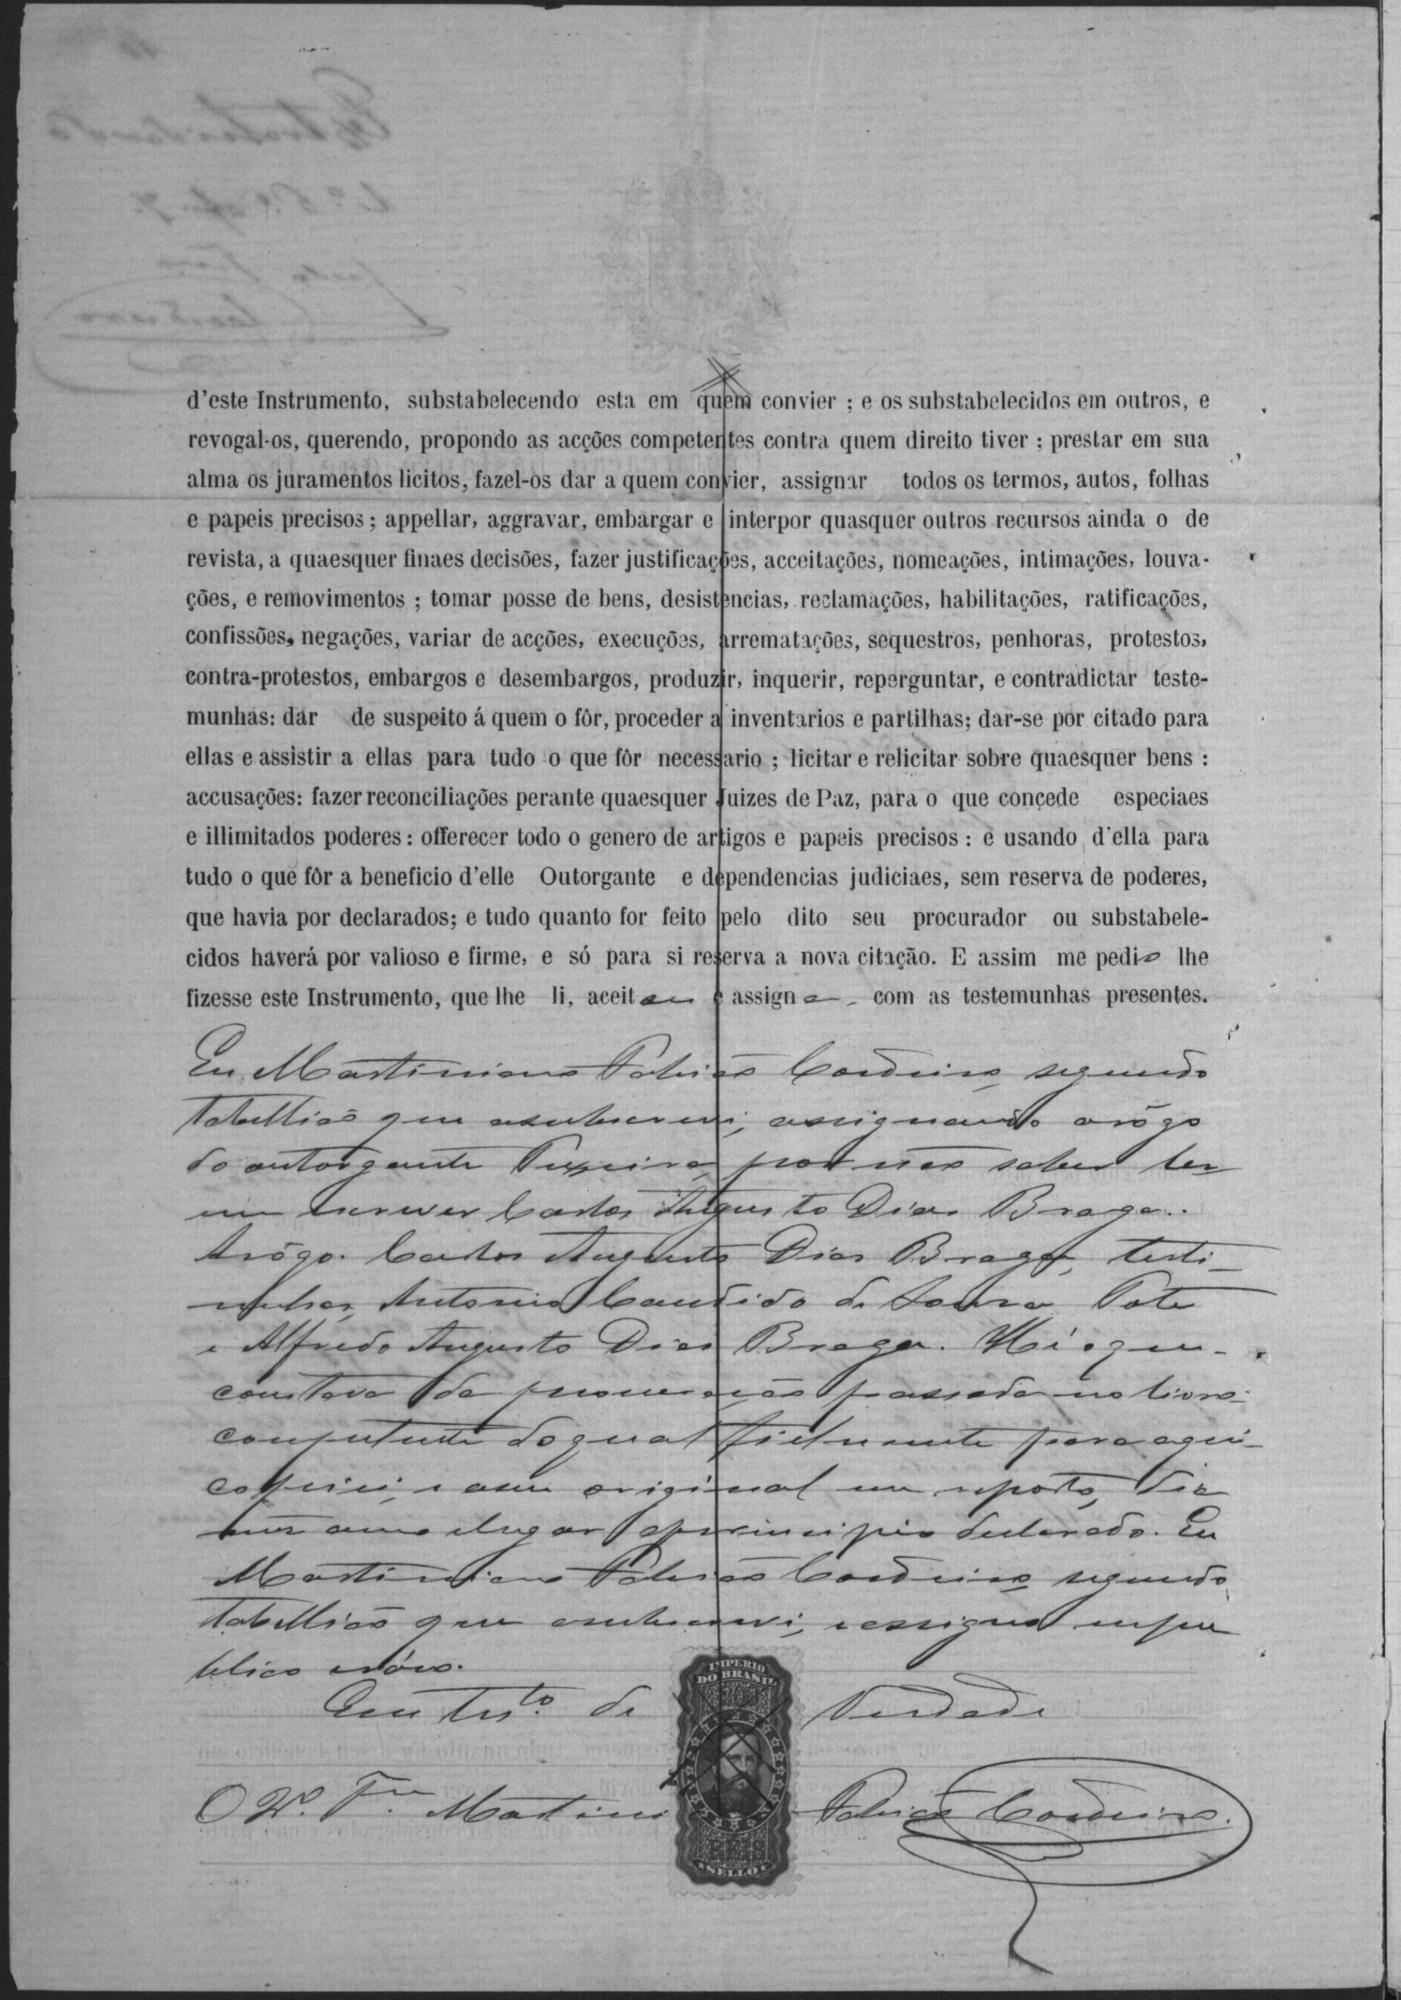 d'este Instrumento, substabelecendo esta em quem convier ; e os substabelecidos em outros, e
revogal-os, querendo, propondo as acções competentes contra quem direito tiver ; prestar em sua
alma os juramentos licitos, fazel-os dar a quem convier, assignar todos os termos, autos, folhas
e papeis precisos ; appellar, aggravar, embargar e interpor quasquer outros recursos ainda o de
revista, a quaesquer finaes decisões, fazer justificações, acceitações, nomeações, intimações, louva-
ções, e removimentos ; tomar posse de bens, desistencias, reclamações, habilitações, ratificações,
confissões, negações, variar de acções, execuções, arrematações, sequestros, penhoras, protestos,
contra-protestos, embargos e desembargos, produzir, inquerir, reperguntar, e contradictar teste-
munhas: dar de suspeito á quem o fôr, proceder a inventarios e partilhas; dar-se por citado para
ellas e assistir a ellas para tudo o que fôr necessario ; licitar e relicitar sobre quaesquer bens :
accusações: fazer reconciliações perante quaesquer Juizes de Paz, para o que concede especiaes
e illimitados poderes : offerecer todo o genero de artigos e papeis precisos : e usando d'ella para
tudo o que fôr a beneficio d'elle Outorgante e dependencias judiciaes, sem reserva de poderes,
que havia por declarados; e tudo quanto for feito pelo dito seu procurador ou substabele-
cidos haverá por valioso e firme, e só para si reserva a nova citação. E assim me pedio lhe
fizesse este Instrumento, que lhe li, aceitou e assigna com as testemunhas presentes.
Eu Martiniano Cordeiro segundo
tabellião que asubscrevi, assignando arôgo
do outorgante por não saber ler
nem escrever Carlos Augusto Dias Braga.
Arôgo. Carlos Augusto Dias Braga, teste-
munhas, Antonio Candido de
e Alfredo Augusto Dias Braga. Hé oque
constava da procuração passada no livro
competente doqual fielmente para aqui
copiei, e aseu original me reporto,
lugar aprincipio declarado. Eu
Martiniano Cordeiro segundo
tabellião que asubscrevi, e assigno em pu
blico e
Em testo. de Verdade
Cordeiro.
IMPERIO
DO BRASIL
SELLO